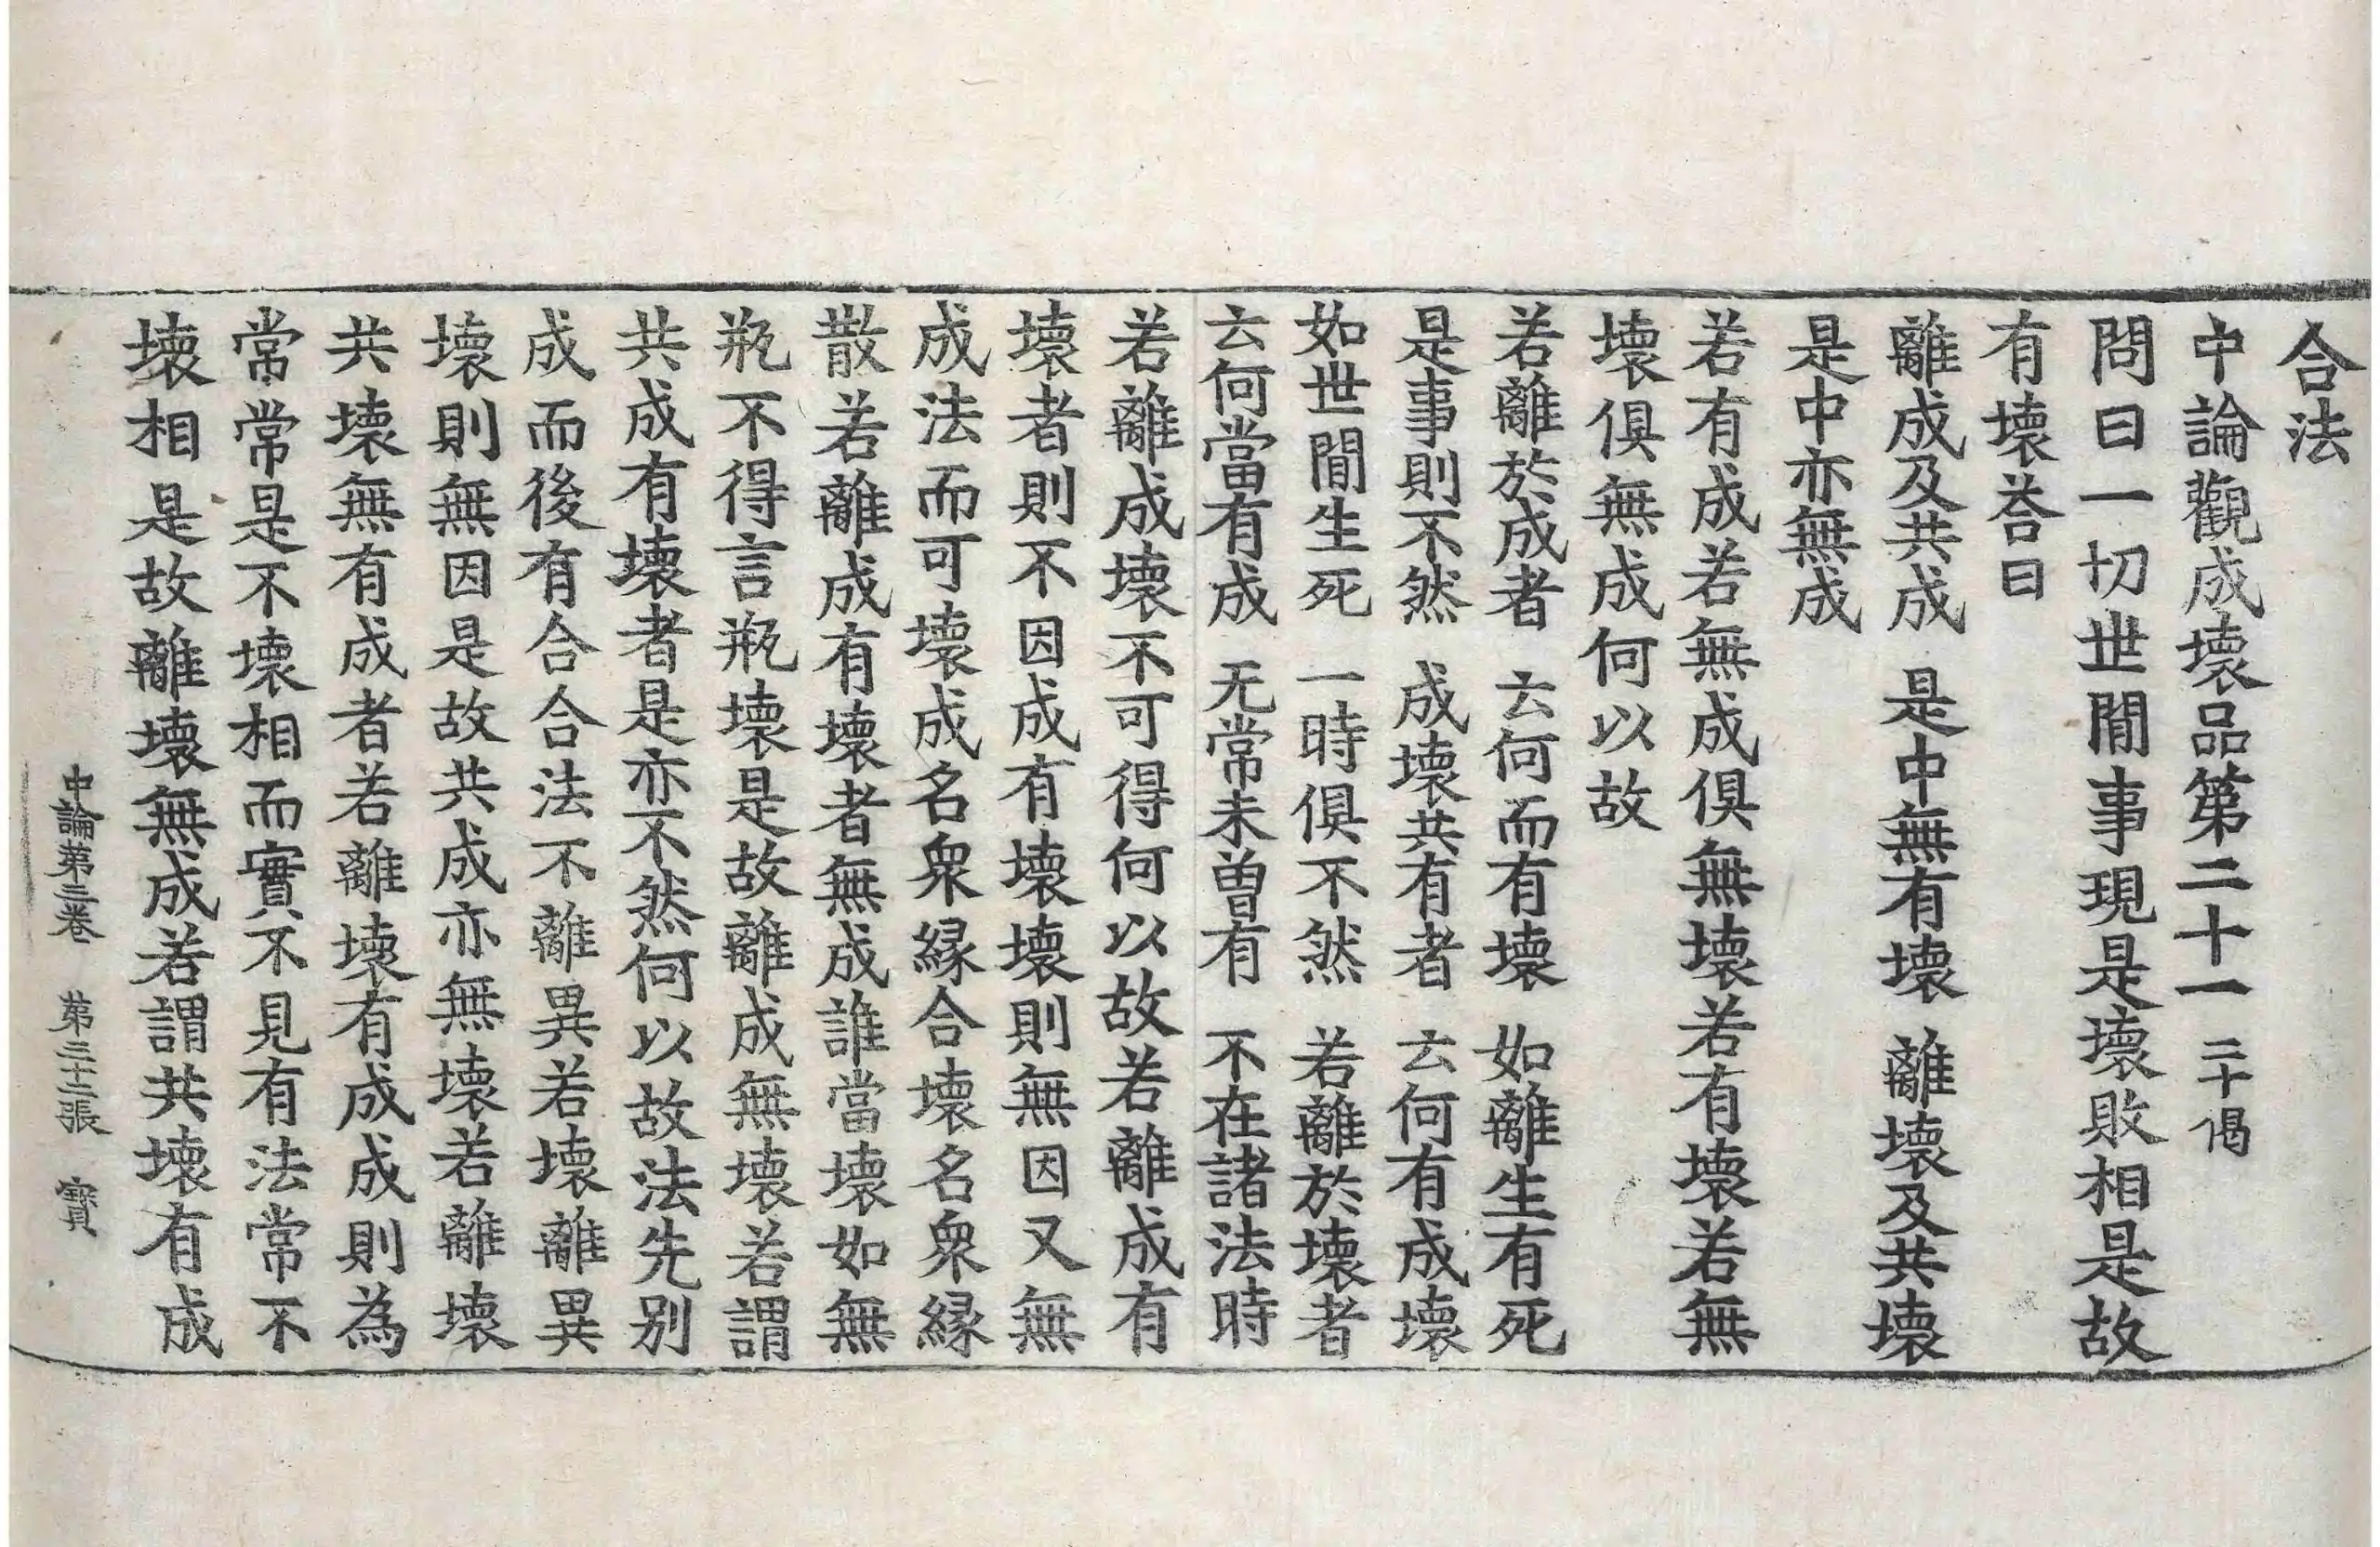 合法
中論觀成壞品第二十一 二十偈
問曰一切世閒事現是壞敗相是故
有壞荅曰
離成及共成 是中無有壞 離壞及共壞
是中亦無成
若有成若無成俱無壞若有壞若無
壞俱無成何以故
若離於成者 云何而有壞 如離生有死
是事則不然 成壞共有者 云何有成壞
如世閒生死 一時俱不然 若離於壞者
云何當有成 无常未曾有 不在諸法時
若離成壞不可得何以故若離成有
壞者則不因成有壞壞則無因又無
成法而可壞成名衆緣合壞名衆緣
散若離成有壞者無成誰當壞如無
瓶不得言瓶壞是故離成無壞若謂
共成有壞者是亦不然何以故法先別
成而後有合合法不離異若壞離異
壞則無因是故共成亦無壞若離壞
共壞無有成者若離壞有成成則為
常常是不壞相而實不見有法常不
壞相是故離壞無成若謂共壞有成
中論第三卷 第三十二張 寶